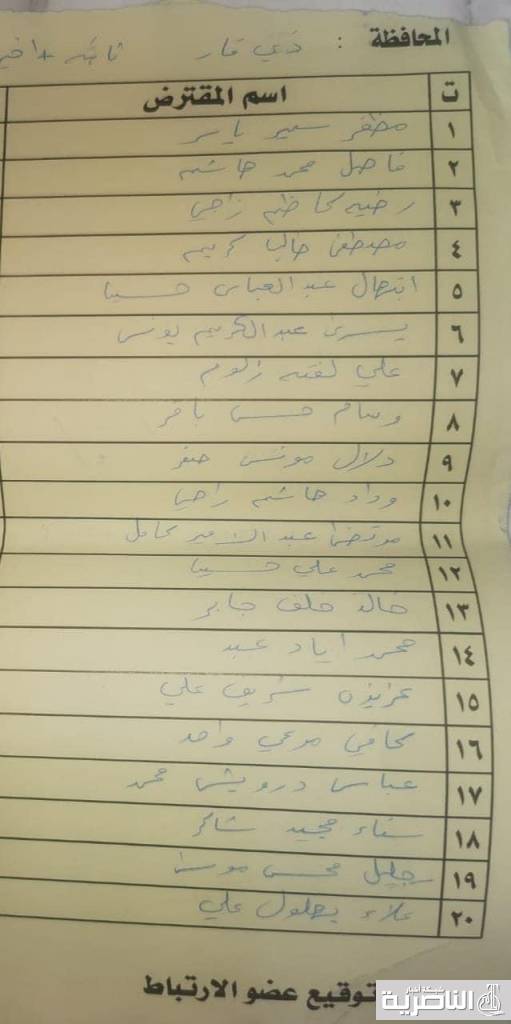 المحافظة : ذي قار
ت اسم المقترض
١ مظفر سمير ياسر
٢ فاضل محمد هاشم
٣ رضيه كاظم راجي
٤ مصطفى طالب كريم
٥ ابتهال عبد العباس حسين
٦ يسرى عبد الكريم يونس
٧ علي لفته زالوم
٨ وسام حسن باقر
٩ دلال مونس صقر
١٠ وداد هاشم راضي
١١ مرتضى عبد الامير كامل
١٢ محمد علي حسين
١٣ خالد خلف جابر
١٤ محمد اياد عبد
١٥ عزيزه شريف علي
١٦ كافي
١٧ عباس درويش محمد
١٨ سناء مجيد شاكر
١٩ جليل محسن
٢٠ علاء بهلول علي
توقيع عضو الارتباط
شبكة أخبار الناصرية